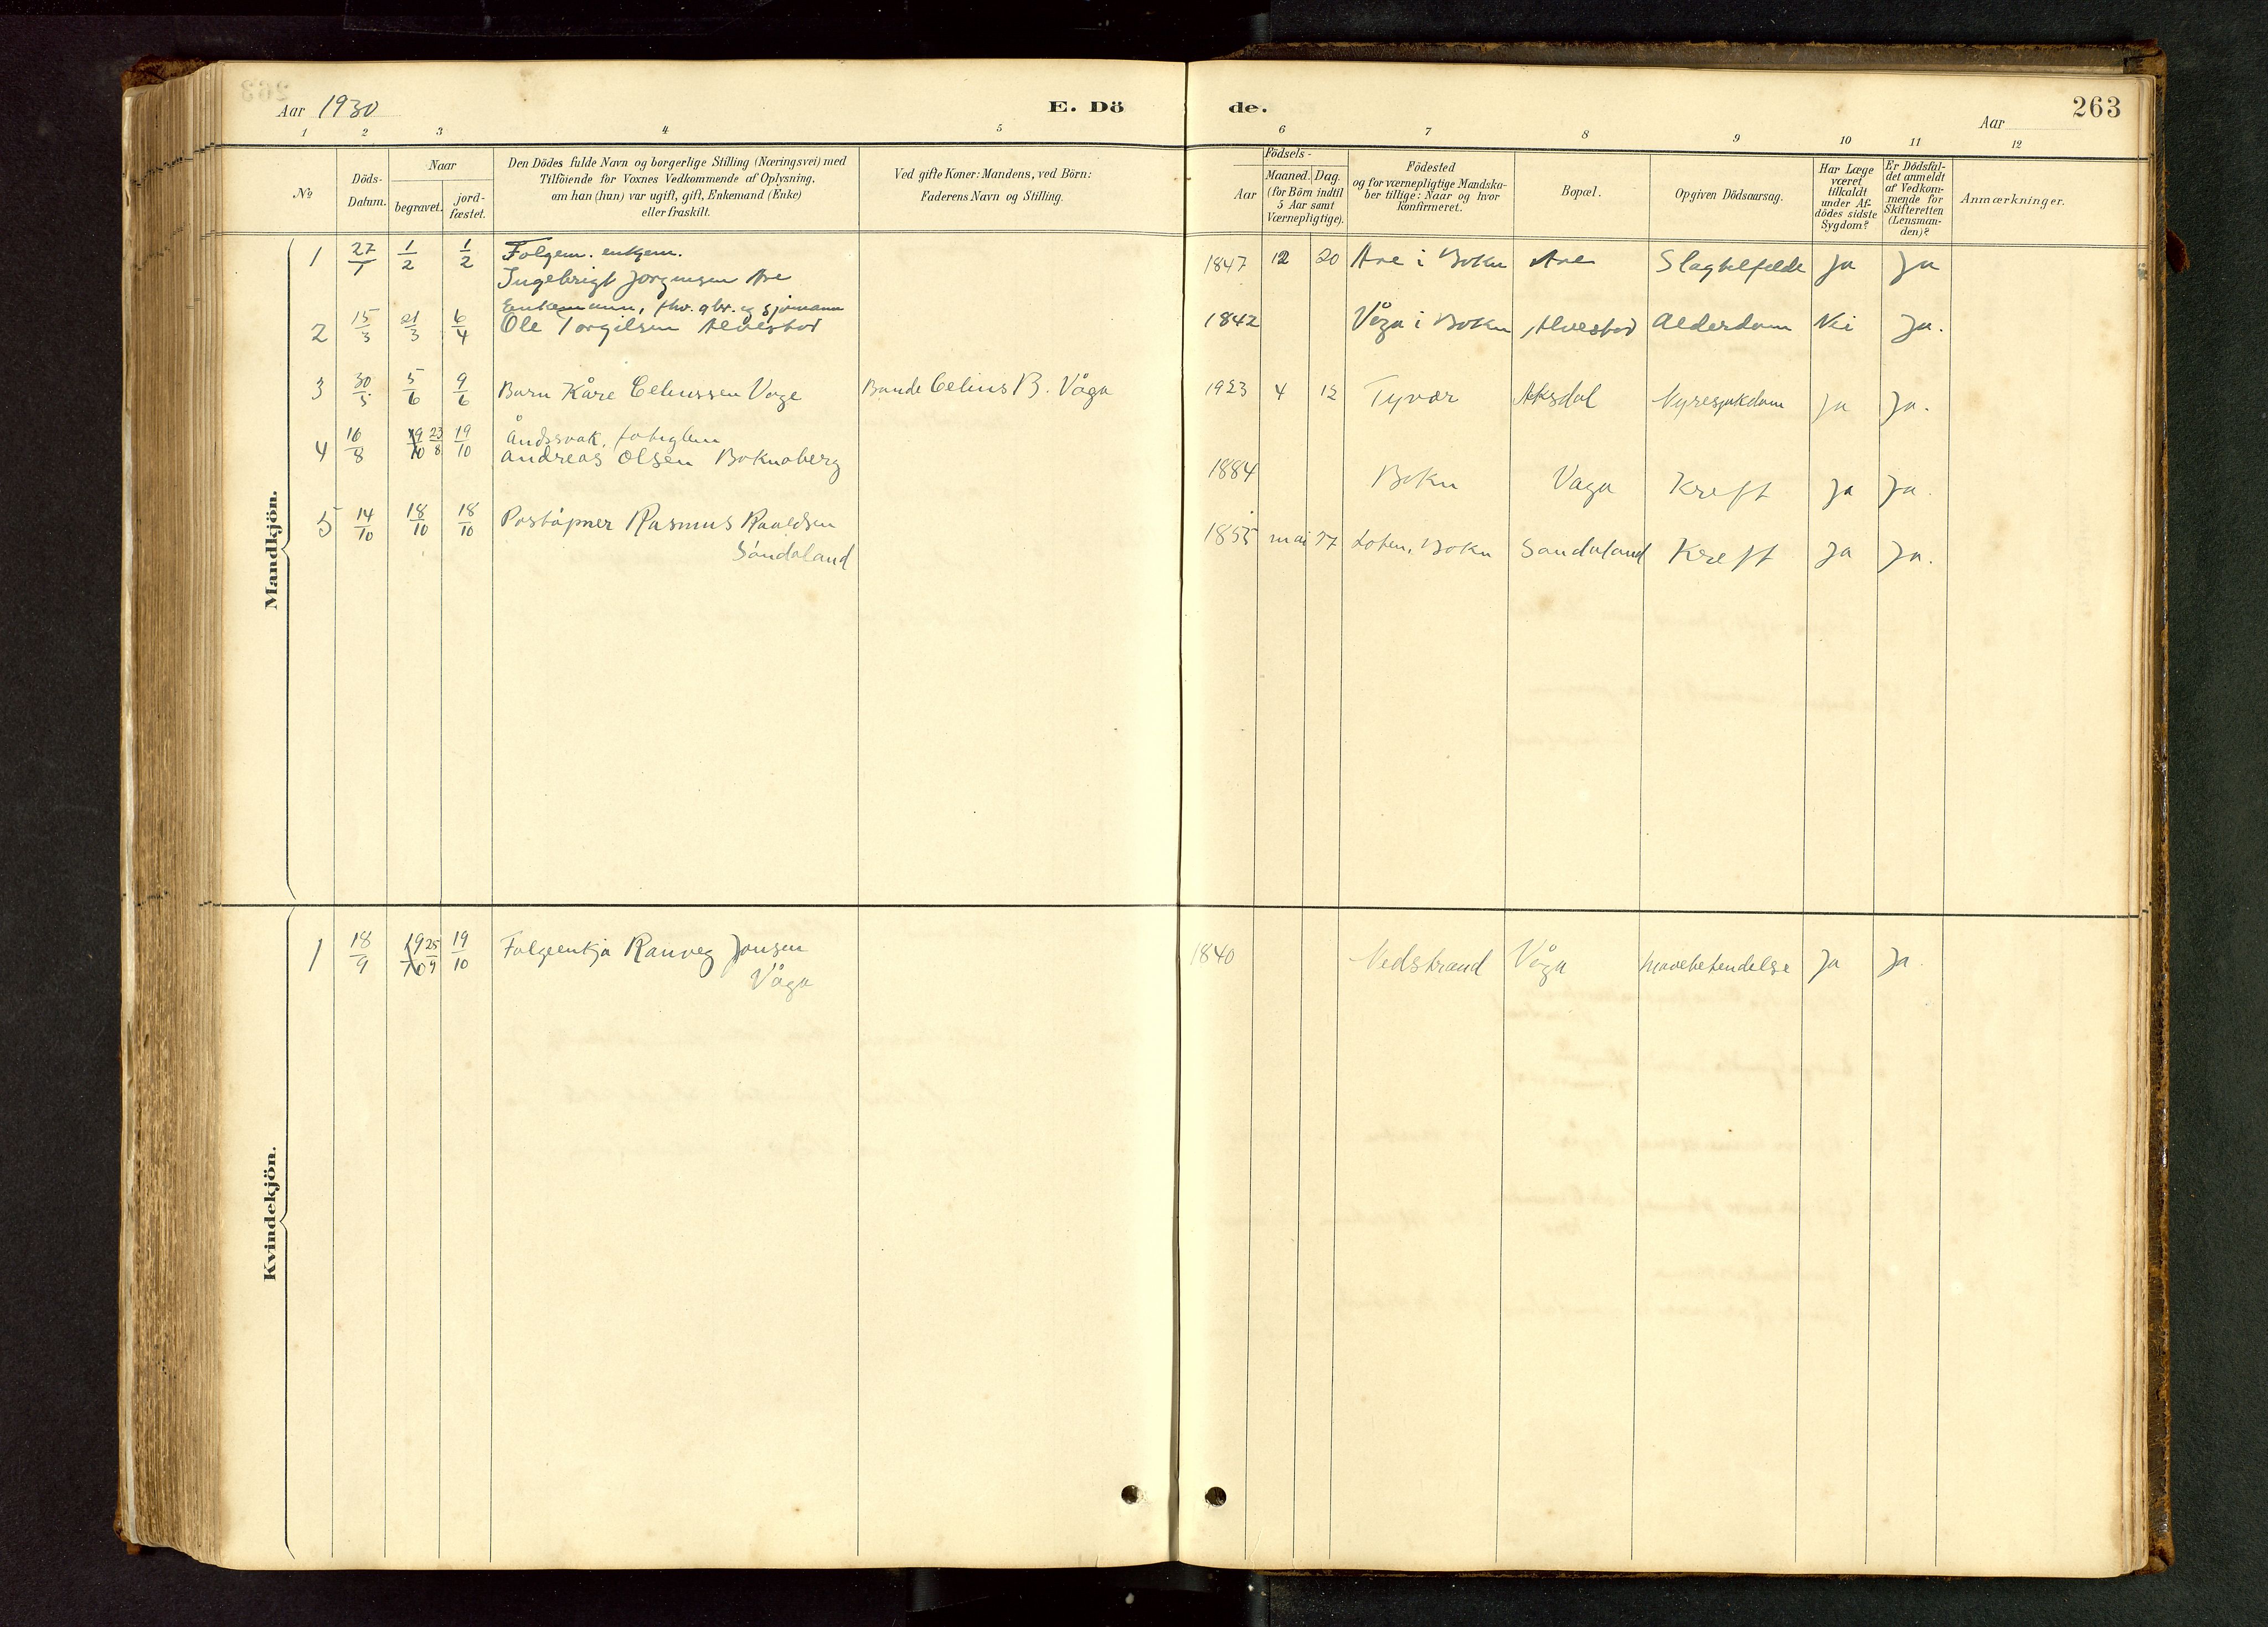 Aar 1930
E. Dö de.
Aar
263
1 2 3 4 5 6 7 8 9 10 11 12
№
Döds-
Datum.
Naar
begravet.
jord-
fæstet.
Den Dödes fulde Navn og borgerlige Stilling (Næringsvei) med
Tilföiende for Voxnes Vedkommende af Oplysning,
om han (hun) var ugift, gift, Enkemand (Enke)
eller fraskilt.
Ved gifte Koner: Mandens, ved Börn:
Faderens Navn og Stilling.
Födsels-
Aar
Maaned. Dag.
(for Börn indtil
5 Aar samt
Værnepligtige).
Födested
og for værnepligtige Mandska-
ber tillige: Naar og hvor
konfirmeret.
Bopæl.
Opgiven Dödsaarsag.
Har Læge
været
tilkaldt
under Af-
dödes sidste
Sygdom?
Er Dödsfal-
det anmeldt
af Vedkom-
mende for
Skifteretten
(Lensman-
den)?
Anmærkninger.
Mandkjön.
1 27/1 1/2 1/2 Folgem. enkem.
Ingebrigt Jørgensen Are
1847 12 20 Are i Bokn Are Slagtilfelde Ja Ja
Enkemann, fhv. gbr. og sjømann
2 15/3 21/3 6/4 Ole Torgilsen Alvestad
1842 Våga i Bokn Alvestad Alderdom Nei Ja.
3 30/5 5/6 9/6 Barn Kåre Celiussen Våge Bonde Celius B. Våga 1923 4 12 Tysvær Aksdal Nyresjukdom Ja Ja.
Åndssvak,
4 16/8 19/10 23/8 19/10 Andreas Olsen Boknaberg
1884 Bokn Vaga Kreft Ja Ja.
5 14/10 18/10 18/10 Poståpner Rasmus
Sandaland
1855 mai 17 Loten, Bokn Sandaland Kreft Ja Ja.
Kvindekjön.
1 18/9 19/10 25/9 19/10 Folgeenkja Ranveg Jonsen
Våga
1840 Nedstrand Våga Ja Ja.